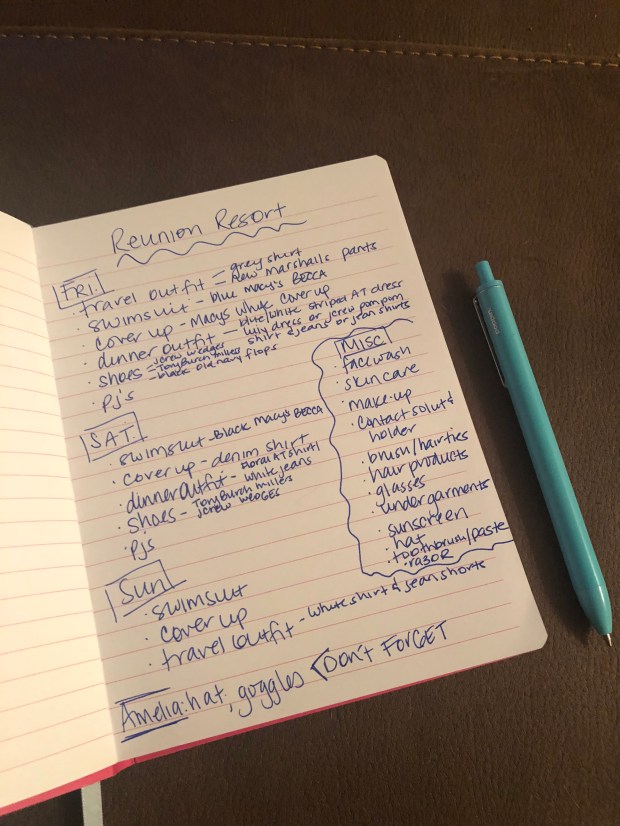 Reunion Resort
FRI.
· travel outfit - grey shirt
- new marshalls pants
· swimsuit - blue Macy's BECCA
· cover up - Macys white cover up
· dinner outfit - blue/white striped AT dress
- lilly dress or jcrew pom pom
shirt & jeans or jean shorts
· shoes - jcrew wedges
- Tony Burch millers
- black old navy flops
· pj's
SAT.
· swimsuit - Black Macy's BECCA
· cover up - denim shirt
· dinner outfit - floral AT shirt
- white jeans
· shoes - Tony Burch millers
jcrew WEDGES
· pjs
Sun
· swimsuit
· cover up
· travel outfit - white shirt & jean shorts
Misc
· facewash
· skin care
· make-up
· contact solut &
holder
· brush/hairties
· hair products
· glasses
· undergarments
· sunscreen
· hat
· toothbrush/paste
· razor
Amelia: hat, goggles < DON'T FORGET